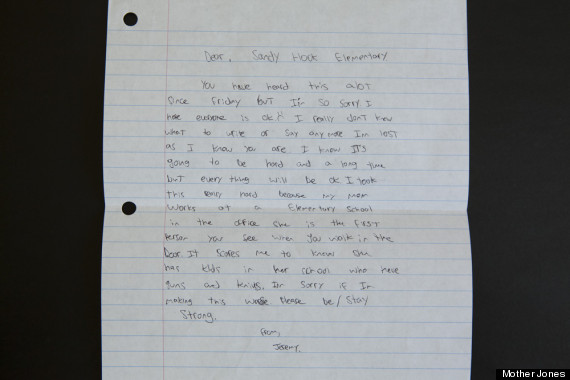 Dear, Sandy Hook Elementary
You have heard this alot
Since Friday but I'm so sorry I
hope everyone is ok? I really don't know
what to write or say anymore Im lost
as I know you are I know ITS
going to be hard and a long time
but every thing will be ok I took
this really hard because my mom
works at a Elementary School
in the office she is the first
person you see when you walk in the
Door It Scares me to know she
has kids in her school who have
guns and knives, Im Sorry if Im
making this worse Please be/Stay
Strong.
From,
Jeremy.
Mother Jones